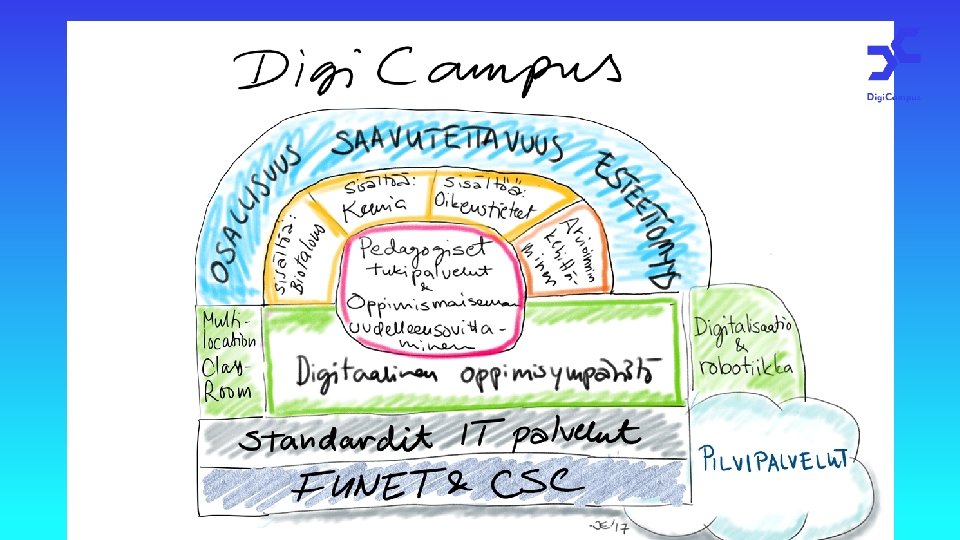 Digi Campus
DigiCampus
OSALLISUUS SAAVUTETTAVUUS ESTEETTÖMYYS
Sisältöä:
Biotalous
Sisältöä:
Kemia
Sisältöä:
Oikeustieteet
Arvioinnin
kehittä-
minen
Pedagogiset
tukipalvelut
&
Oppimismaiseman
uudelleensovitta-
minen
Multi-
location
Class-
Room
Digitaalinen oppimisympäristö
Digitalisaatio
&
robotiikka
Standardit IT palvelut
PILVIPALVELUT
FUNET & CSC
JE/17